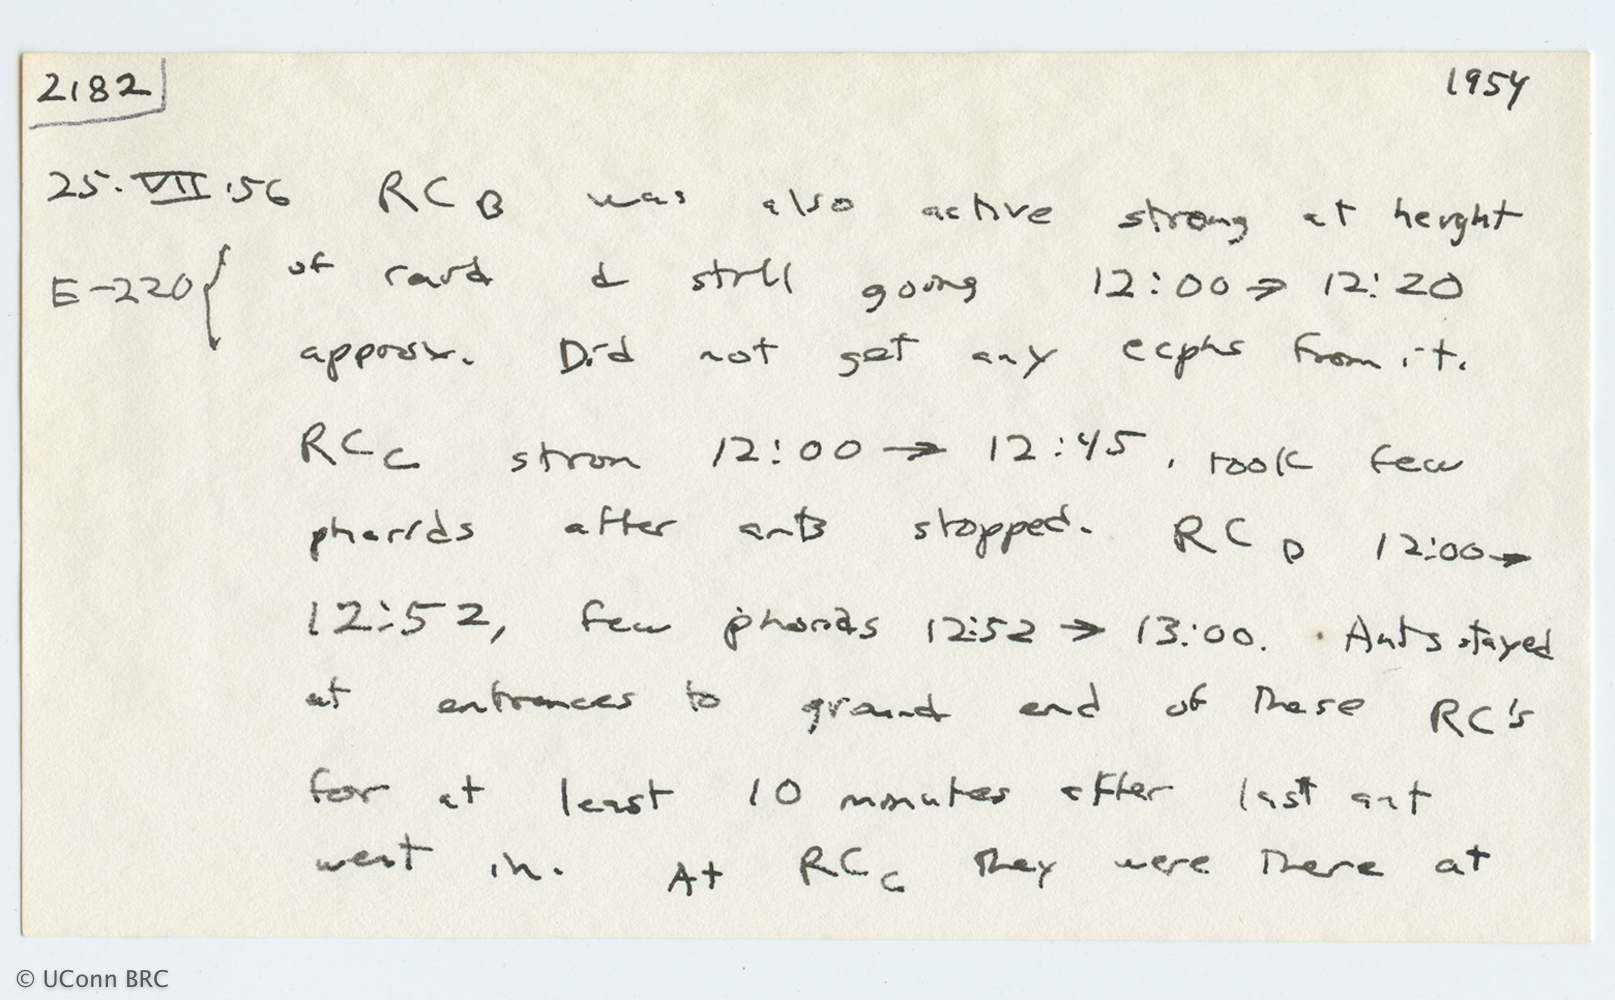 2182
1954
25.VII.56 RC B was also active strong at height
E-220 { of raid & still going 12:00 → 12:20
approx. Did not get any ecphs from it.
RC C stron 12:00 → 12:45, took few
phorids after ants stopped. RC D 12:00→
12:52, few phorids 12:52 → 13:00. Ants stayed
at entrances to ground end of these RC's
for at least 10 minutes after last ant
went in. At RC C they were there at
© UConn BRC